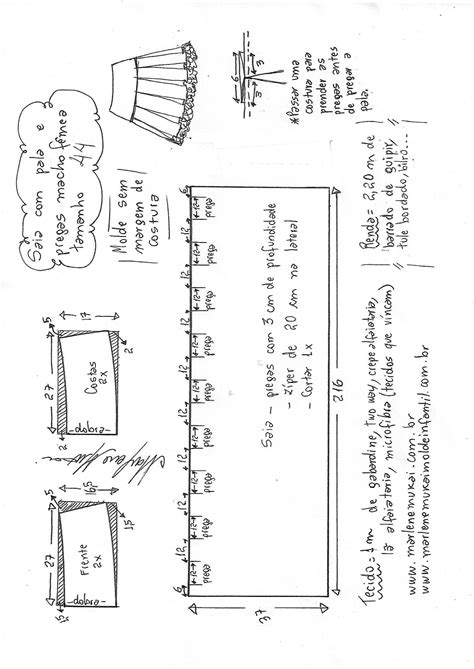 Saia com pala e
pregas macho fêmea
tamanho 44
Molde sem
margem de
costura
6
3
3
*Passar uma
costura para
prender as
pregas antes
de pregar a
pala.
27
5
16,5
Frente
2x
-dobra-
1,5
1,5
27
5
17
Costas
2x
-dobra-
2
2
6 12 12 12 12 12 12 12 12 6
12 12 12 12 12 12 12 12 12
prega prega prega prega prega prega prega prega prega
Saia - pregas com 3 cm de profundidade
- zíper de 20 cm na lateral
- Cortar 1x
37
216
Tecido = 1 m de gabardine, two way, crepe alfaiataria,
lã alfaiataria, microfibra (tecidos que vincam)
www.marlenemukai.com.br
www.marlenemukaimoldeinfantil.com.br
Renda = 2,20 m de
barrado de guipir,
tule bordado, bilro...